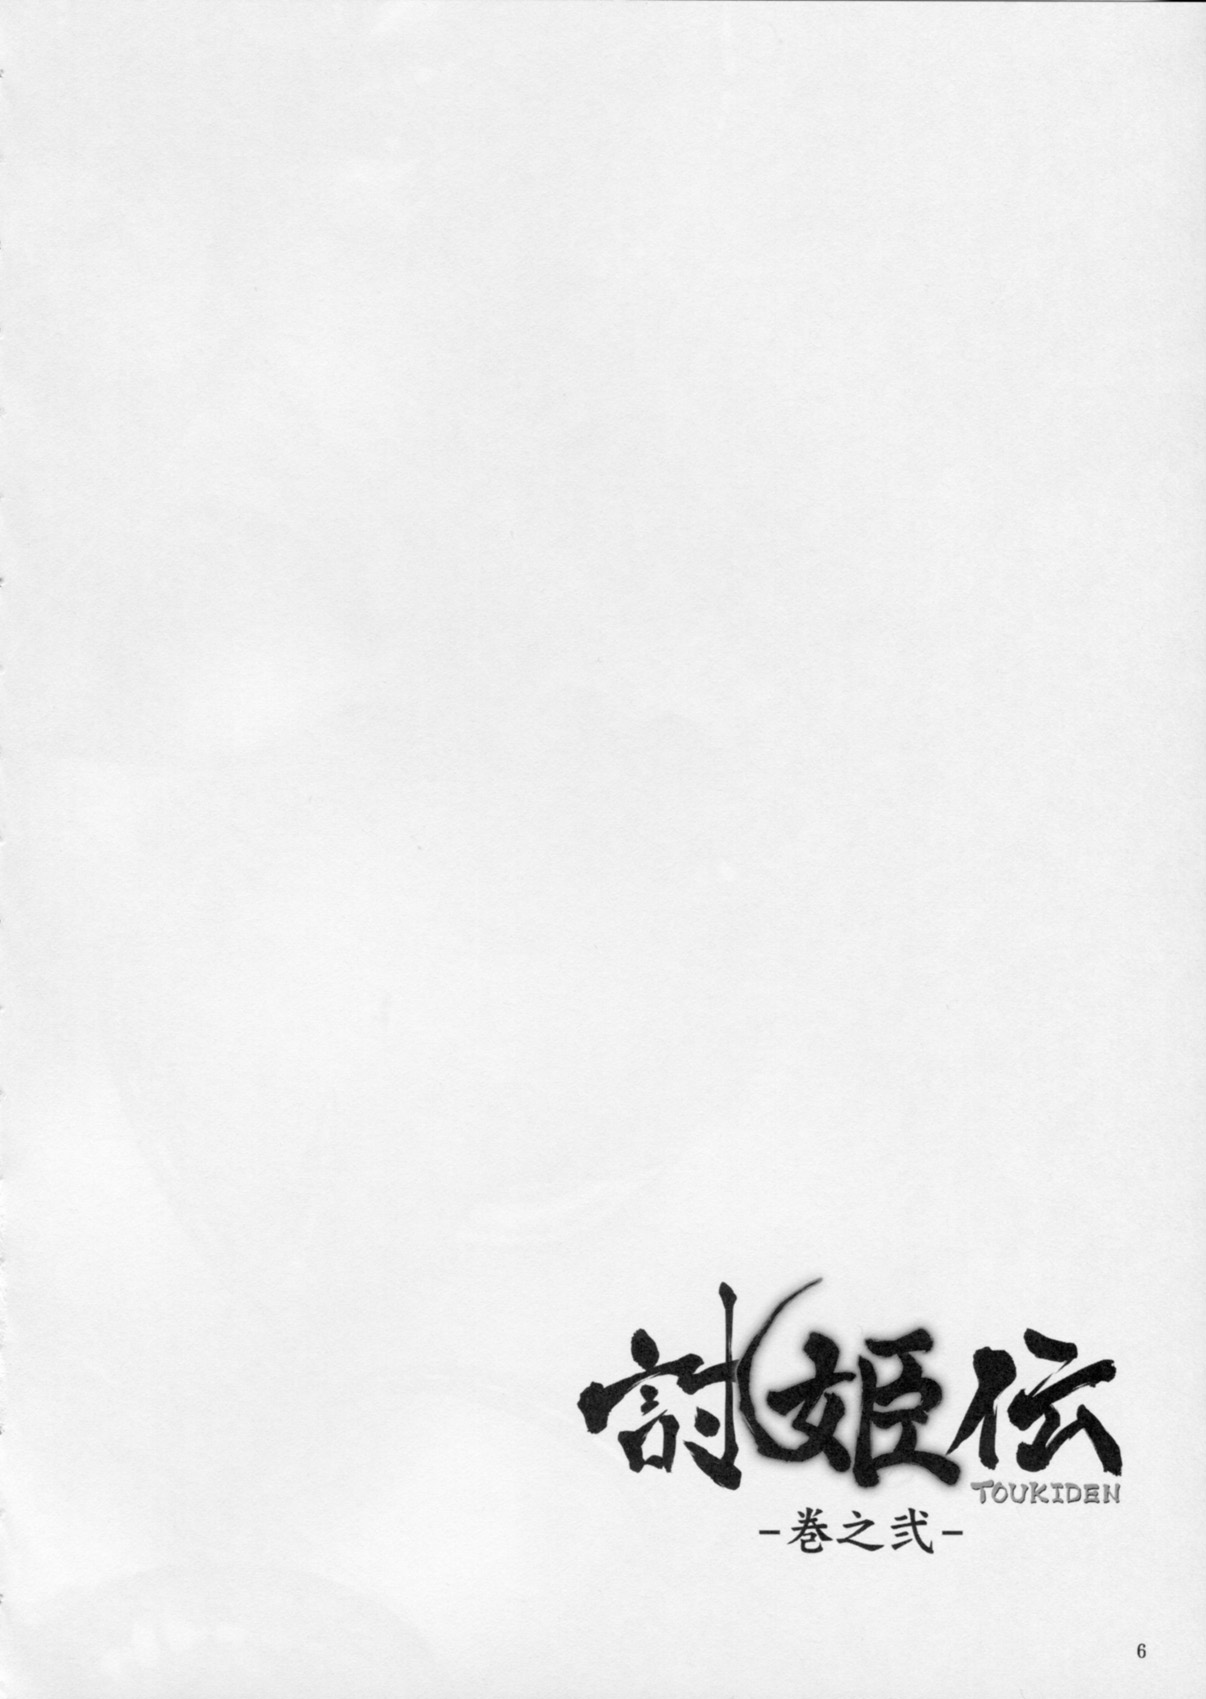 討姫伝
TOUKIDEN
-巻之弐-
6